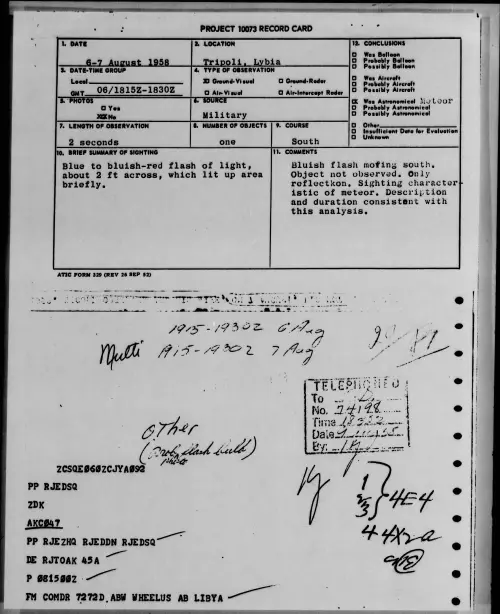 PROJECT 10073 RECORD CARD
1. DATE
6-7 August 1958
2. LOCATION
Tripoli, Lybia
12. CONCLUSIONS
Was Balloon
Probably Balloon
Possibly Balloon
Was Aircraft
Probably Aircraft
Possibly Aircraft
XX Was Astronomical Meteor
Probably Astronomical
Possibly Astronomical
Other
Insufficient Data for Evaluation
Unknown
3. DATE-TIME GROUP
Local
GMT 06/1815Z-1830Z
4. TYPE OF OBSERVATION
XO Ground-Visual
Ground-Radar
Air-Visual
Air-Intercept Radar
5. PHOTOS
Yes
XXXNo
6. SOURCE
Military
7. LENGTH OF OBSERVATION
2 seconds
8. NUMBER OF OBJECTS
one
9. COURSE
South
10. BRIEF SUMMARY OF SIGHTING
Blue to bluish-red flash of light,
about 2 ft across, which lit up area
briefly.
11. COMMENTS
Bluish flash mofing south.
Object not observed. Only
reflectkon. Sighting character-
istic of meteor. Description
and duration consistent with
this analysis.
ATIC FORM 329 (REV 26 SEP 52)
1915-1930Z 6 Aug
Multi 1915-1930Z 7 Aug
TELEPHONED
To
No. 74198
Time
Date
By
Other
(Prob flash bulb)
photo
ZCSQE0602CJYA092
PP RJEDSQ
ZDK
AKC047
PP RJEZHQ RJEDDN RJEDSQ
DE RJTOAK 45A
P 081500Z
FM COMDR 7272D ABW WHEELUS AB LIBYA
1
2
3
4E4
4X2a